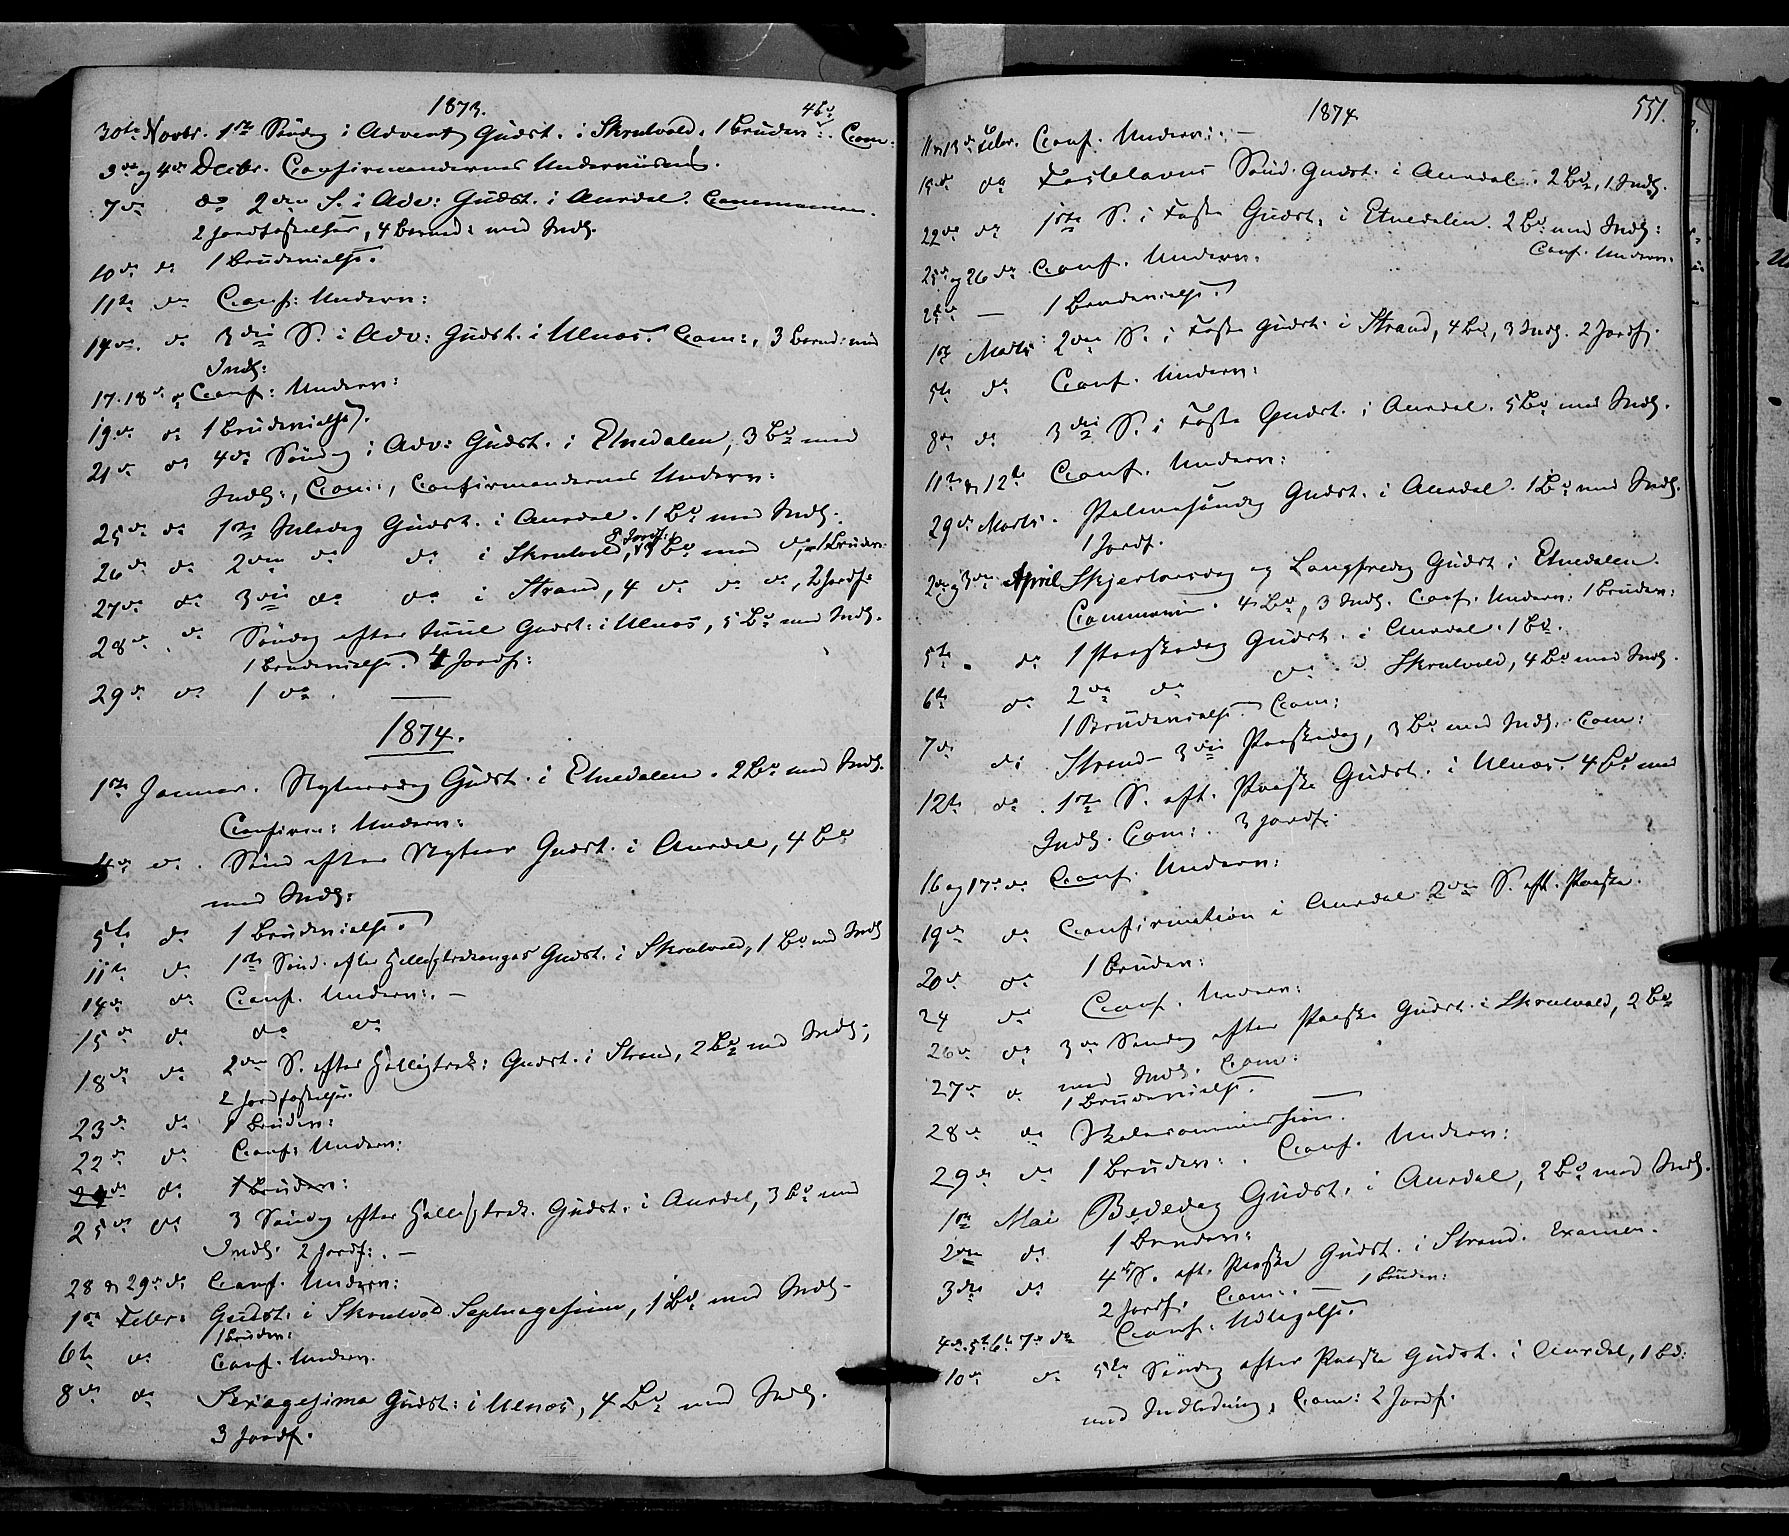 1873.
30te Novbr. 1ste Søndag i Advent Gudst. i Skrutvold. 1 Bruden:. Com:
3die og 4de Decbr. Confirmandernes Underviisning.
7de do 2den S. i Adv: Gudst. i Aurdal. Communion.
2 Jordfæstelser, 4 Børned: med Indl.
10de do 1 Brudevielse.
11te do Conf: Underv:
14de do 3die S. i Adv: Gudst. i Ulnæs. Com:, 3 Børned: med
Indl:
17. 18de do Conf: Underv:
19de do 1 Brudevielse.
21de do 4de Søndag i Adv: Gudst. i Etnedalen, 3 Bd med
Indl:, Com:, Confirmandernes Underv:
25de do 1ste Juledag Gudst. i Aurdal. 1 Bd med Indl.
26de do 2den do do i Skrutvold, Bd med do, 1 Bruden:
27de do 3die do do i Strand, 4 do do do, 2 Jordf:
28de do Søndag efter Juul Gudst: i Ulnæs, 5 Bd med Indl.
1 Brudevielse. 4 Jordf:
29de do 1 do.
1874.
1ste Januar. Nytaarsdag Gudst. i Etnedalen. 2 Bd med Indl.
Confirm: Underv:
4de do. Sønd efter Nytaar Gudst. i Aurdal, 4 Bd
med Indl:
5te do 1 Brudevielse.
11te do 1ste Sønd. efter Helligtrekonger Gudst. i Skrutvold, 1 Bd med Indl
14de do Conf. Underv:. —
15de do do do
18de do 2den S. efter Helligtrek: Gudst. i Strand, 2 Bd med Indl.;
2 Jordfæstelser.
23de do 1 Bruden:
22de do Conf: Underv:
24de do 1 Bruden:
25de do 3 Søndag efter Helligtrek. Gudst. i Aurdal, 3 Bd med
Indl. 2 Jordf:. —
28 & 29de do Conf. Underv:
1ste Febr: Gudst. i Skrutvold Septuagesima, 1 Bd med Indl.
1 Bruden:
6te do Conf. Underv.
8de do Sexagesima Gudst: i Ulnæs, 4 Bd med Indl.
3 Jordf.
1874
551.
11 & 13de Febr. Conf. Underv:. —
15de do Fastelavns Sønd. Gudst. i Aurdal. 2 Bd, 1 Indl.
22de do 1ste S. i Faste Gudst. i Etnedalen. 2 Bd med Indl:
Conf. Underv:
25de og 26 do Conf. Underv:
25de — 1 Brudevielse.
1ste Marts 2den S. i Faste Gudst. i Strand, 4 Bd, 3 Indl. 2 Jordf.
5te do Conf. Underv:
8de do 3die S. i Faste Gudst. i Aurdal. 5 Bd med Indl.
11te & 12te Conf. Underv:
29de Marts. Palmesøndag Gudst. i Aurdal. 1 Bd med Indl.
1 Jordf.
2den og 3die April Skjertorsdag og Langfredag Gudst. i Etnedalen.
Communion. 4 Bd, 3 Indl. Conf. Underv: 1 Bruden:
5te do 1 Paaskedag Gudst. i Aurdal. 1 Bd.
6te do 2den do do i Skrutvold, 4 Bd med Indl.
1 Brudevielse. Com:
7de do Strand 3die Paaskedag, 3 Bd med Indl. Com:
12te do 1ste S. eft. Paaske Gudst. i Ulnæs. 4 Bd med
Indl. Com:. 3 Jordf.
16 og 17de do Conf. Underv:
19de do Confirmation i Aurdal 2den S. eft. Paaske.
20de do 1 Bruden:
24 do Conf. Underv:
26de do 3die Søndag efter Paaske Gudst. i Skrutvold, 2 Bd
med Indl. Com:
27de do 1 Brudevielse.
28de do Skolecommission.
29de do 1 Bruden:. Conf. Underv:
1ste Mai Bededag Gudst. i Aurdal, 2 Bd med Indl.
2den do 1 Bruden:
3die do 4de S. eft. Paaske Gudst. i Strand. Examen.
2 Jordf. Com:. — 1 Bruden:
4de 5te 6te 7de do Conf. Udtagelse.
10de do 5te Søndag efter Paaske Gudst. i Aurdal, 1 Bd:
med Indledning, Com: 2 Jordf.